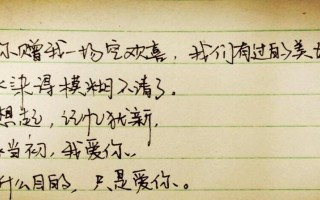 你赠我一场空欢喜,我们有过的美好
染得模糊不清了。
想起,记忆犹新,
当初,我爱你.
什么目的,只是爱你。